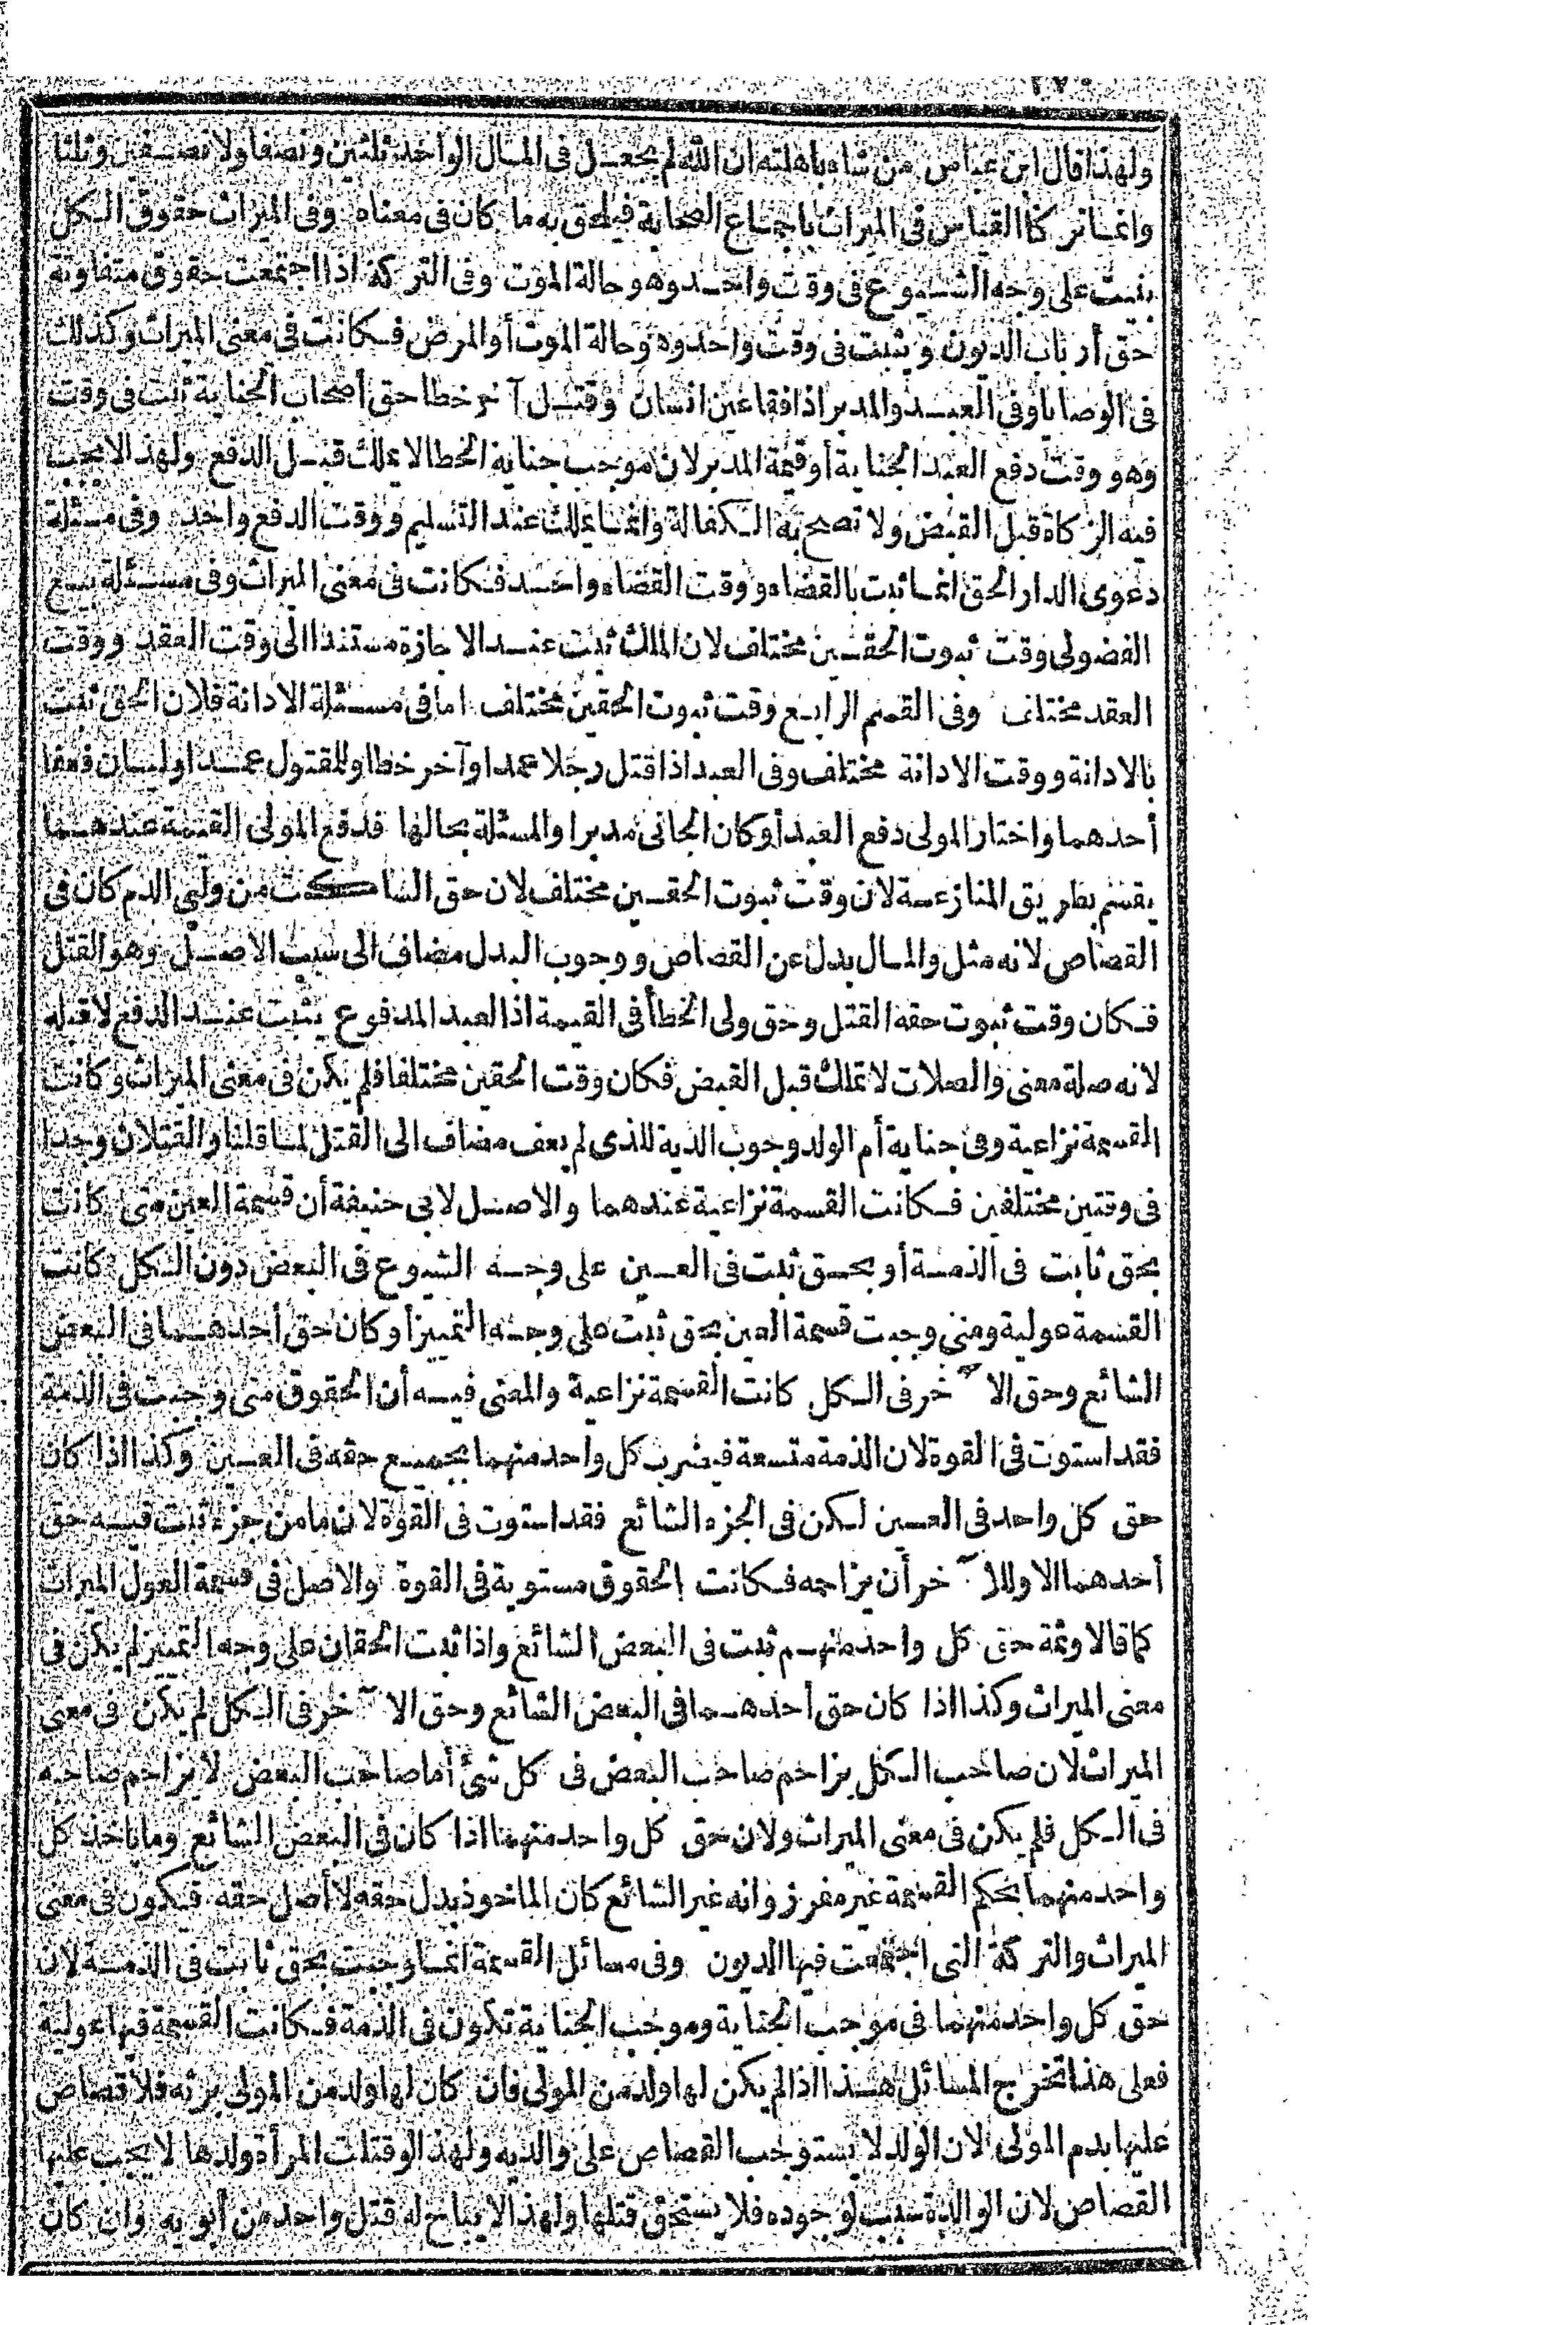 ولهذا قال ابن عباس من شاء باهلته ان الله لم يجعل فى المال الواحد ثلثين ونصفا ولا نصفين وثلثا
وانما تركنا القياس فى الميراث باجماع الصحابة فيلحق به ما كان فى معناه وفى الميراث حقوق الكل
بنيت على وجه الشيوع فى وقت واحد وهو حالة الموت وفى التركة اذا اجتمعت حقوق متفاوتة
حق أرباب الديون ويثبت فى وقت واحد وهو حالة الموت أو المرض فكانت فى معنى الميراث وكذلك
فى الوصايا وفى العبد والمدبر اذا فقأ عين انسان وقتل آخر خطأ حق أصحاب الجناية ثبت فى وقت
وهو وقت دفع العبد الجناية أو قيمة المدبر لان موجب جناية الخطا لا يملك قبل الدفع ولهذا لا يجب
فيه الزكاة قبل القبض ولا تصح به الكفالة وانما يملك عند التسليم ووقت الدفع واحد وفى مسئلة
دعوى الدار الحق انما ثبت بالقضاء ووقت القضاء واحد فكانت فى معنى الميراث وفى مسئلة بيع
الفضولى وقت ثبوت الحقين مختلف لان الملك ثبت عند الاجازة مستندا الى وقت العقد ووقت
العقد مختلف وفى القسم الرابع وقت ثبوت الحقين مختلف اما فى مسئلة الادانة فلان الحق ثبت
بالادانة ووقت الادانة مختلف وفى العبد اذا قتل رجلا عمدا وآخر خطا وللمقتول عمدا وليان فعفا
أحدهما واختار المولى دفع العبد أو كان الجانى مدبرا والمسئلة بحالها فدفع المولى القيمة عندهما
يقسم بطريق المنازعة لان وقت ثبوت الحقين مختلف لان حق الساكت من وليى الدم كان فى
القصاص لانه مثل والمال بدل عن القصاص ووجوب البدل مضاف الى سبب الاصل وهو القتل
فكان وقت ثبوت حقه القتل وحق ولى الخطأ فى القيمة اذ العبد المدفوع يثبت عند الدفع لا قبله
لانه صلة معنى والصلات لا تملك قبل القبض فكان وقت الحقين مختلفا فلم يكن فى معنى الميراث وكانت
القسمة نزاعية وفى جناية أم الولد وجوب الدية للذى لم يعف مضاف الى القتل لما قلنا والقتلان وجدا
فى وقتين مختلفين فكانت القسمة نزاعية عندهما والاصل لابى حنيفة أن قسمة العين متى كانت
بحق ثابت فى الذمة أو بحق ثبت فى العين على وجه الشيوع فى البعض دون الكل كانت
القسمة عولية ومتى وجبت قسمة العين بحق ثبت على وجه التمييز أو كان حق أحدهما فى البعض
الشائع وحق الآخر فى الكل كانت القسمة نزاعية والمعنى فيه أن الحقوق متى وجبت فى الذمة
فقد استوت فى القوة لان الذمة متسعة فيضرب كل واحد منهما بجميع حقه فى العين وكذا اذا كان
حق كل واحد فى العين لكن فى الجزء الشائع فقد استوت فى القوة لان ما من جزء ثبت فيه حق
أحدهما الا وللآخر أن يزاحمه فكانت الحقوق مستوية فى القوة والاصل فى قسمة العول الميراث
كما قالا وثمة حق كل واحد منهم ثبت فى البعض الشائع واذا ثبت الحقان على وجه التمييز لم يكن فى
معنى الميراث وكذا اذا كان حق أحدهما فى البعض الشائع وحق الآخر فى الكل لم يكن فى معنى
الميراث لان صاحب الكل يزاحم صاحب البعض فى كل شئ أما صاحب البعض لا يزاحم صاحبه
فى الكل فلم يكن فى معنى الميراث ولان حق كل واحد منهما اذا كان فى البعض الشائع وما يأخذ كل
واحد منهما بحكم القسمة غير مفرز وانه غير الشائع كان المأخوذ بدل حقه لا أصل حقه فيكون فى معنى
الميراث والتركة التى اجتمعت فيها الديون وفى مسائل القسمة انما وجبت بحق ثابت فى الذمة لان
حق كل واحد منهما فى موجب الجناية وموجب الجناية تكون فى الذمة فكانت القسمة فيها عولية
فعلى هذا تخرج المسائل هذا اذا لم يكن لها ولد من المولى فان كان لها ولد من المولى يرثه فلا قصاص
عليها بدم المولى لان الولد لا يستوجب القصاص على والديه ولهذا لو قتلت المرأة ولدها لا يجب عليها
القصاص لان الوالدة سبب لوجوده فلا يستحق قتلها ولهذا لا يباح له قتل واحد من أبويه وان كان